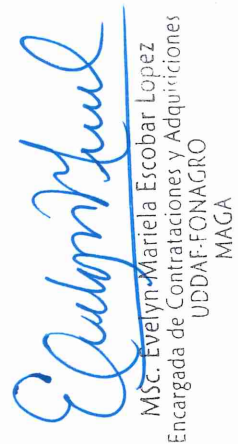 MSc. Evelyn Mariela Escobar Lopez
Encargada de Contrataciones y Adquisiciones
UDDAF-FONAGRO
MAGA